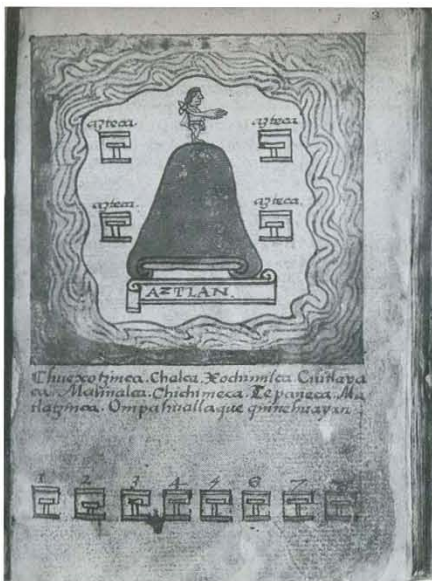 3
azteca. azteca.
azteca. azteca.
AZTLAN.
Chuexotzinca. Chalca. Xochimilca. Cuitlava
ca. Malinalca. Chichimeca. Tepaneca. Ma
tlatzinca. Ompahuallaque quinehuayan.
1 2 3 4 5 6 7 8